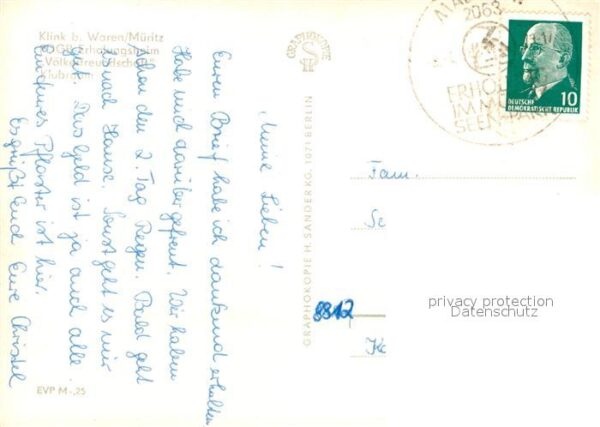 Klink b. Waren/Müritz
FDGB-Erholungsheim
"Völkerfreundschaft"
Klubraum
Meine Lieben!
Euren Brief habe ich dankend erhalten
Habe mich darüber gefreut. Wir haben
schon den 2. Tag Regen. Bald geht
es nach Hause. Sonst geht es mir
gut. Das Geld ist ja auch alle.
teures Pflaster ist hier.
Es grüßt Euch Eure Christel
EVP M -,25
GRAPHOKOPIE
GRAPHOKOPIE H. SANDER KG, 1071 BERLIN
2063
ERHOL
IM M
SEEN-PARK
10
DEUTSCHE
DEMOKRATISCHE REPUBLIK
Fam.
Se
8812
Ke
privacy protection
Datenschutz